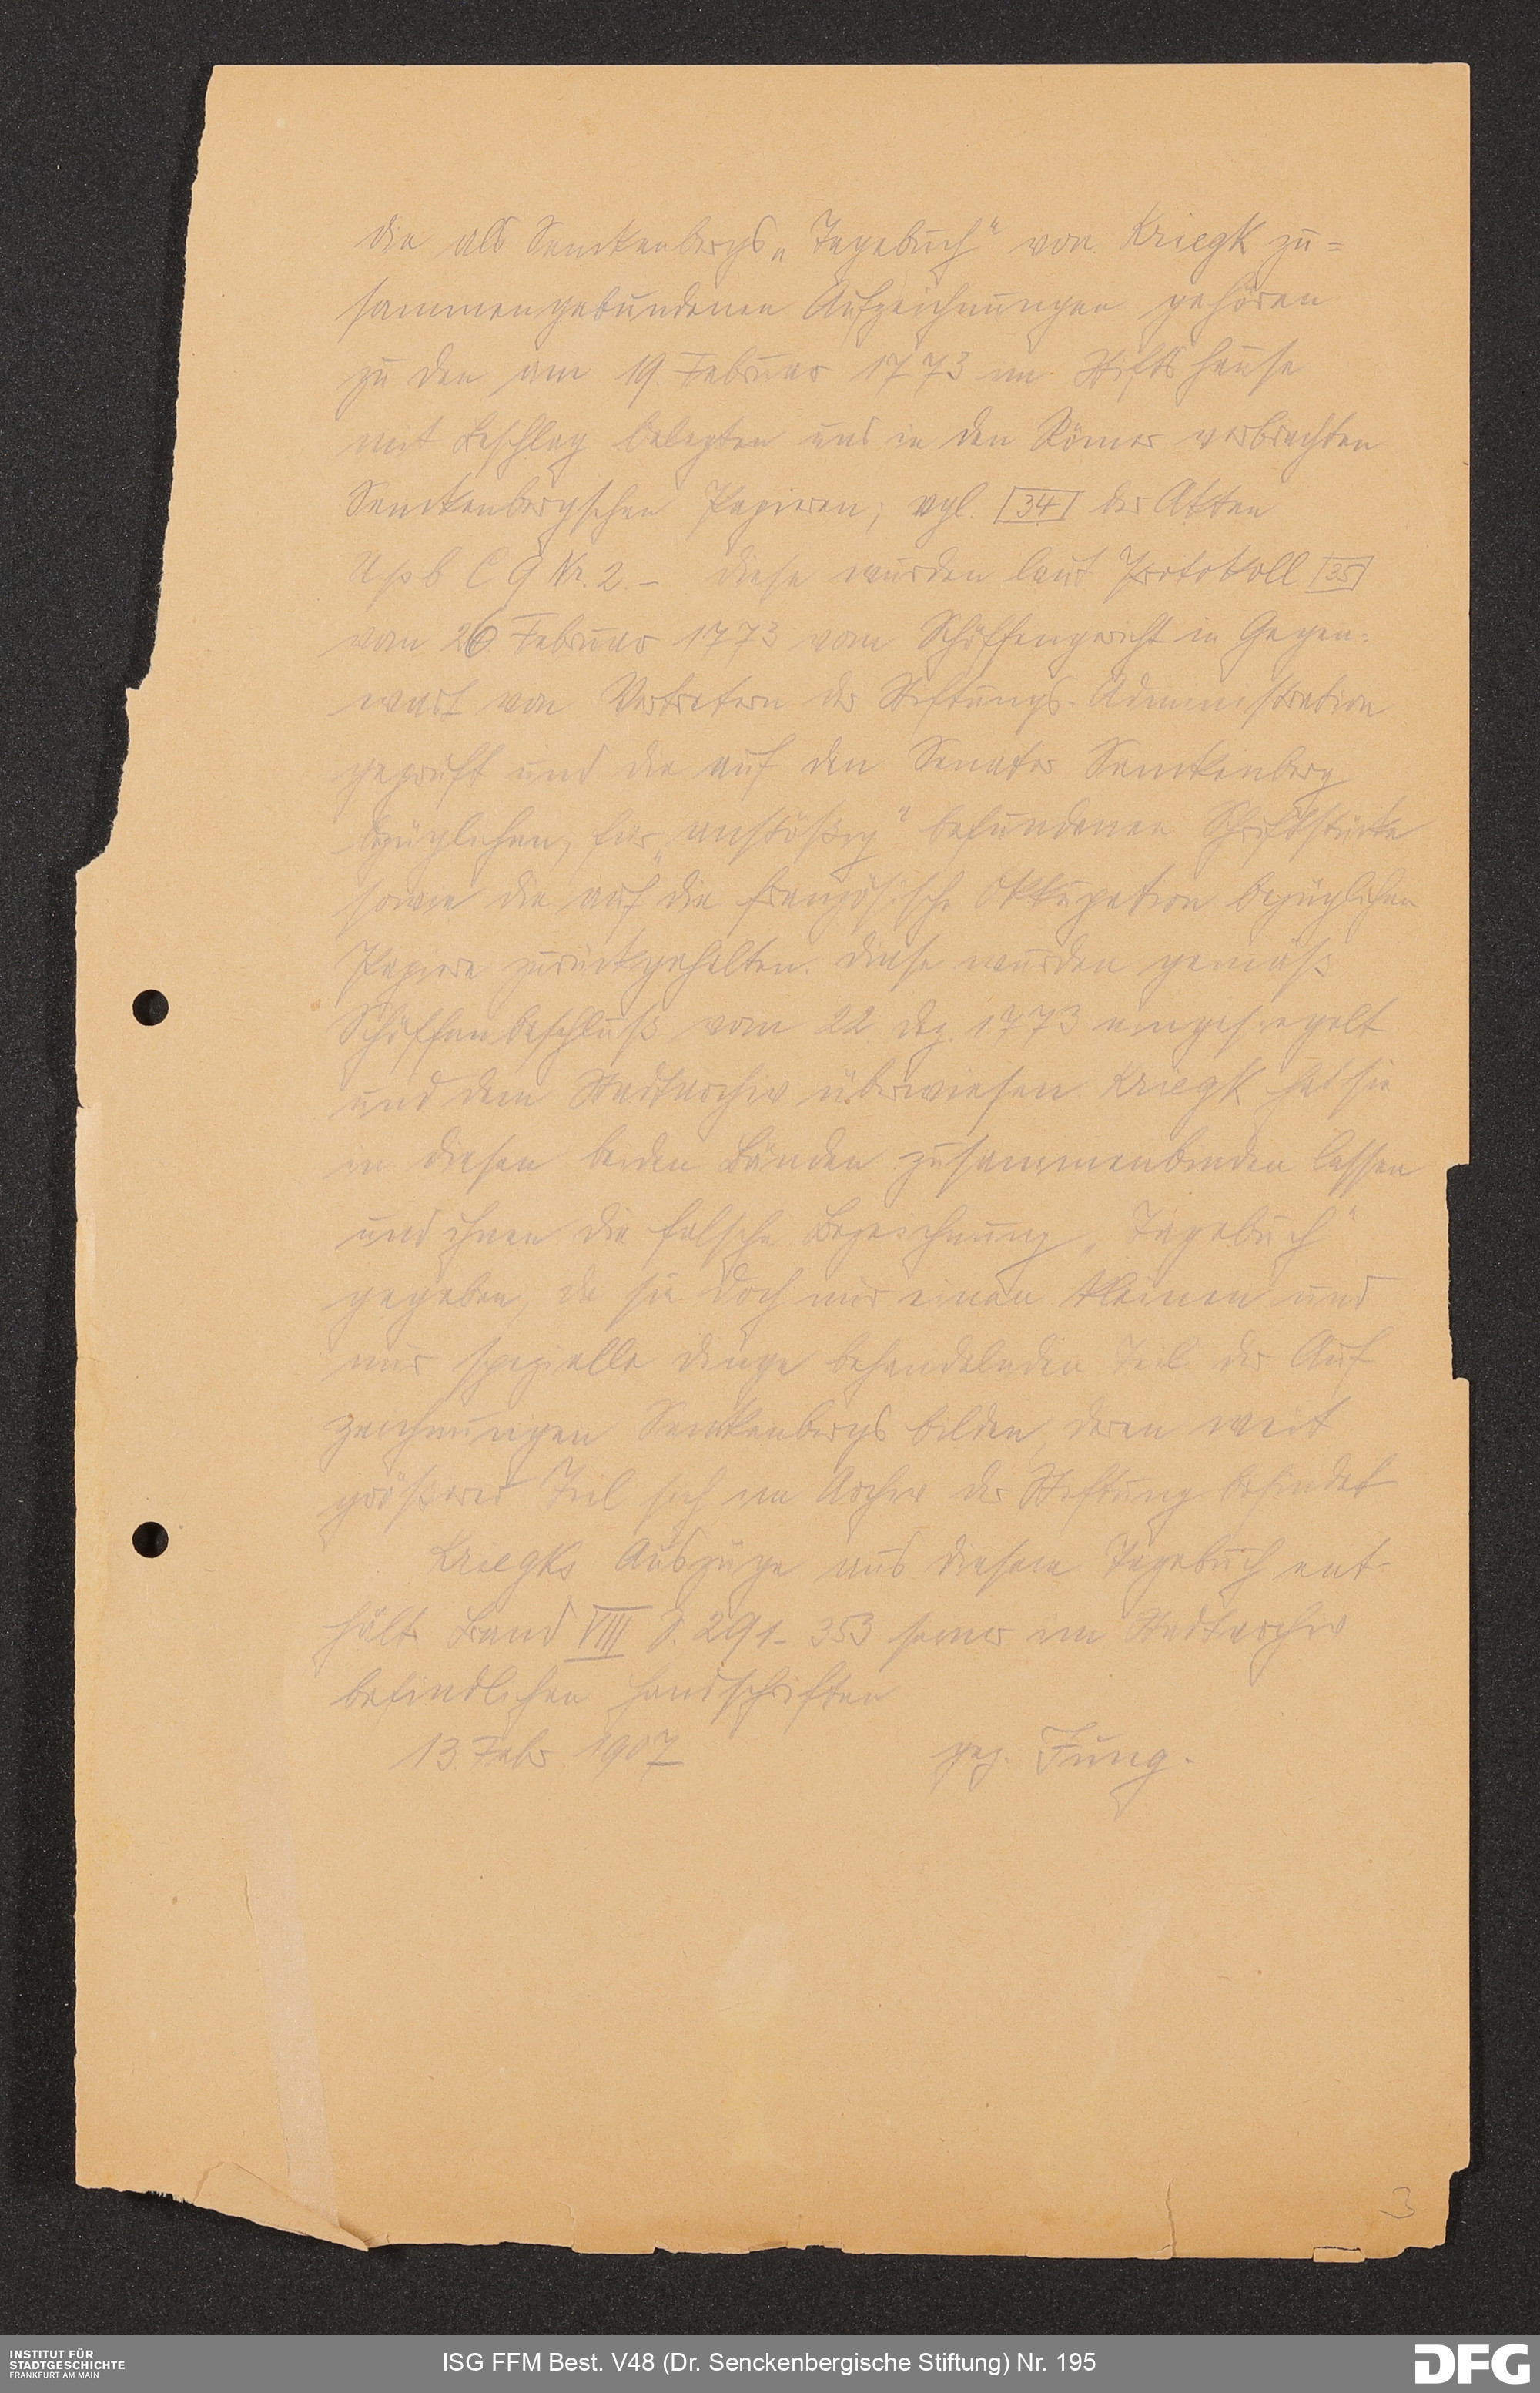 Die als Senckenbergs „Tagebuch“ von Kriegk zu=
sammengebundenen Aufzeichnungen gehören
zu den am 19. Februar 1773 im Stiftshause
mit Beschlag belegten und in den Römer verbrachten
Senckenbergschen Papieren; vgl. [34] der Akten
Ugb C 9 Nr. 2. – Diese wurden laut Protokoll [35]
vom 26. Februar 1773 vom Schöffengericht in Gegen-
wart von Vertretern der Stiftungs-Administration
geprüft und die auf den Senator Senckenberg
bezüglichen, für „anstößig“ befundenen Schriftstücke
sowie die auf die französische Okkupation bezüglichen
Papiere zurückgehalten. Diese wurden gemäß
Schöffenbeschluß vom 22. Dez. 1773 eingesiegelt
und dem Stadtarchiv überwiesen. Kriegk hat sie
in diesen beiden Bänden zusammenbinden lassen
und ihnen die falsche Bezeichnung „Tagebuch“
gegeben, da sie doch nur einen kleinen und
nur spezielle Dinge behandelnden Teil der Auf
zeichnungen Senckenbergs bilden, deren weit
größerer Teil sich im Archiv der Stiftung befindet
Kriegks Auszüge aus diesem Tagebuch ent-
hält Band VIII S. 291–353 seiner im Stadtarchiv
befindlichen Handschriften
13 Febr. 1907 gez. Jung.
3
INSTITUT FÜR
STADTGESCHICHTE
FRANKFURT AM MAIN
ISG FFM Best. V48 (Dr. Senckenbergische Stiftung) Nr. 195
DFG